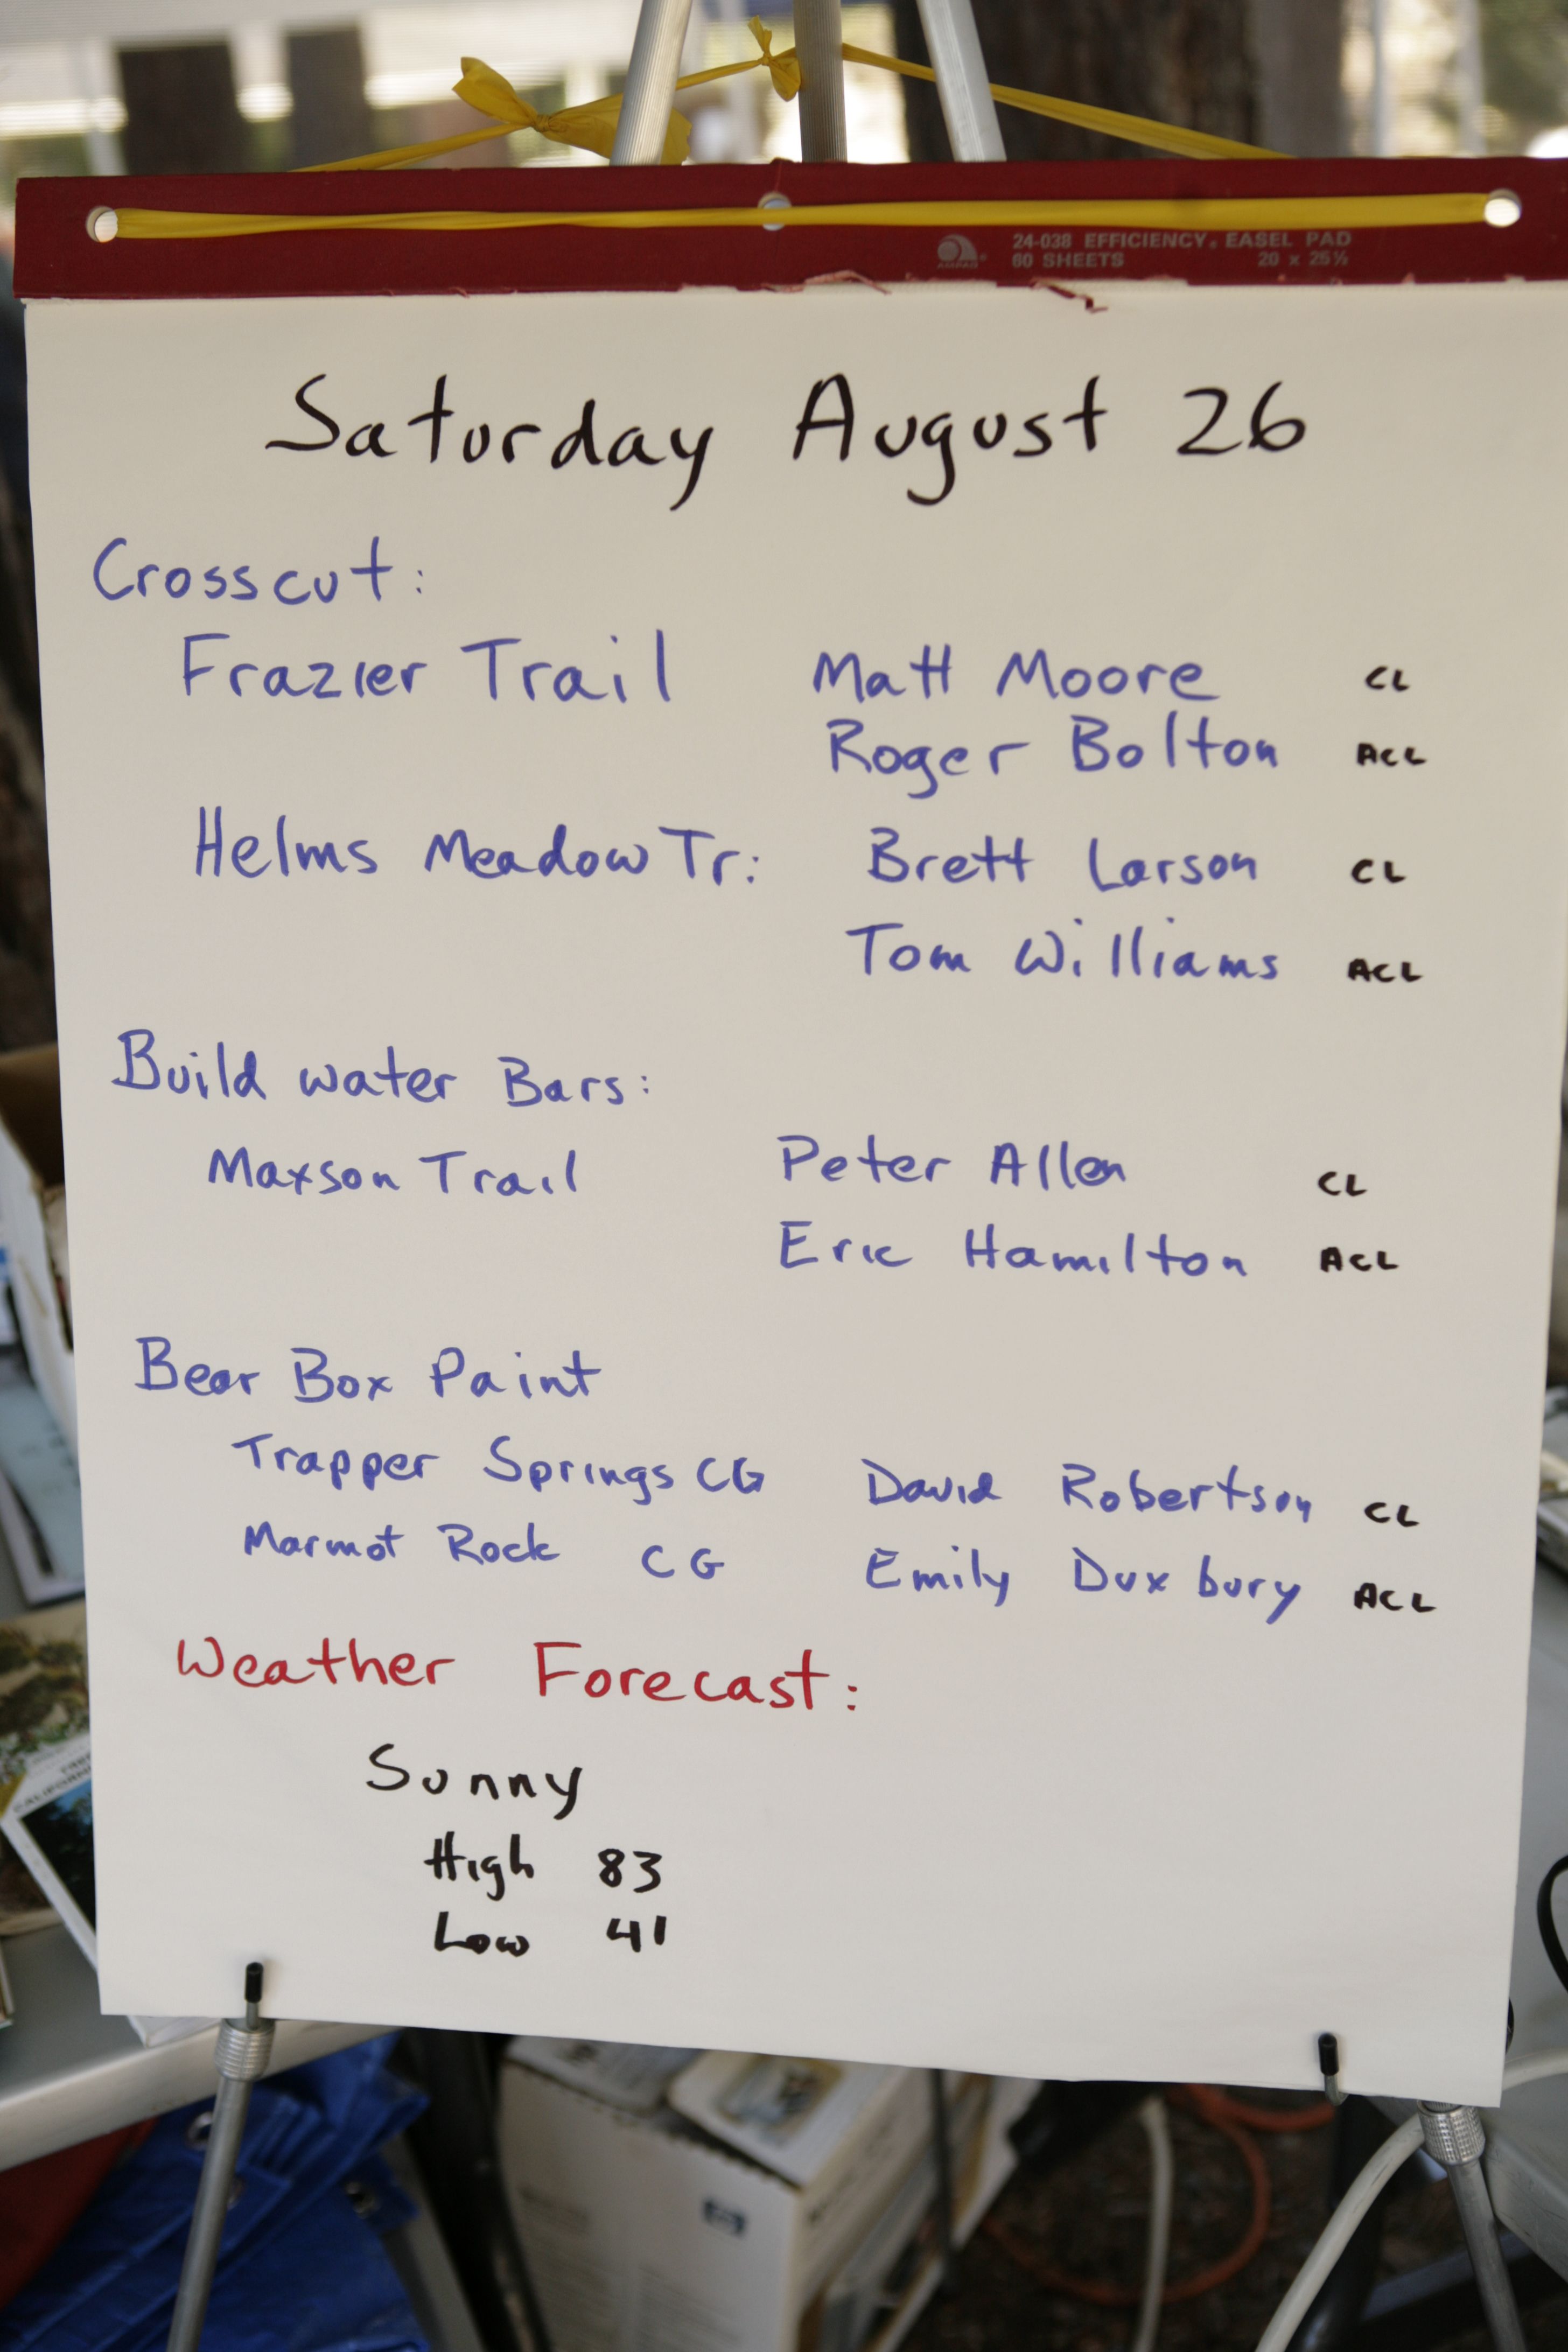 24-038 EFFICIENCY® EASEL PAD
60 SHEETS 20 x 25½
AMPAD
Saturday August 26
Crosscut:
Frazier Trail Matt Moore CL
Roger Bolton ACL
Helms Meadow Tr: Brett Larson CL
Tom Williams ACL
Build water Bars:
Maxson Trail Peter Allen CL
Eric Hamilton ACL
Bear Box Paint
Trapper Springs CG David Robertson CL
Marmot Rock CG Emily Duxbury ACL
Weather Forecast:
Sunny
High 83
Low 41
hp